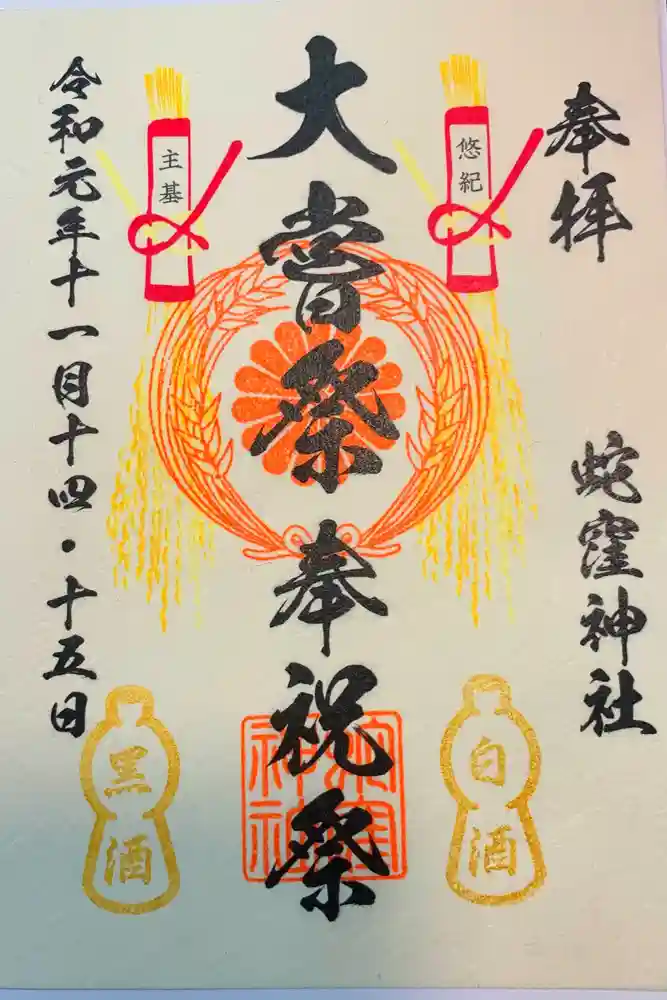 奉拝
蛇窪神社
悠紀
大嘗祭奉祝祭
主基
令和元年十一月十四・十五日
白酒
黒酒
蛇窪神社